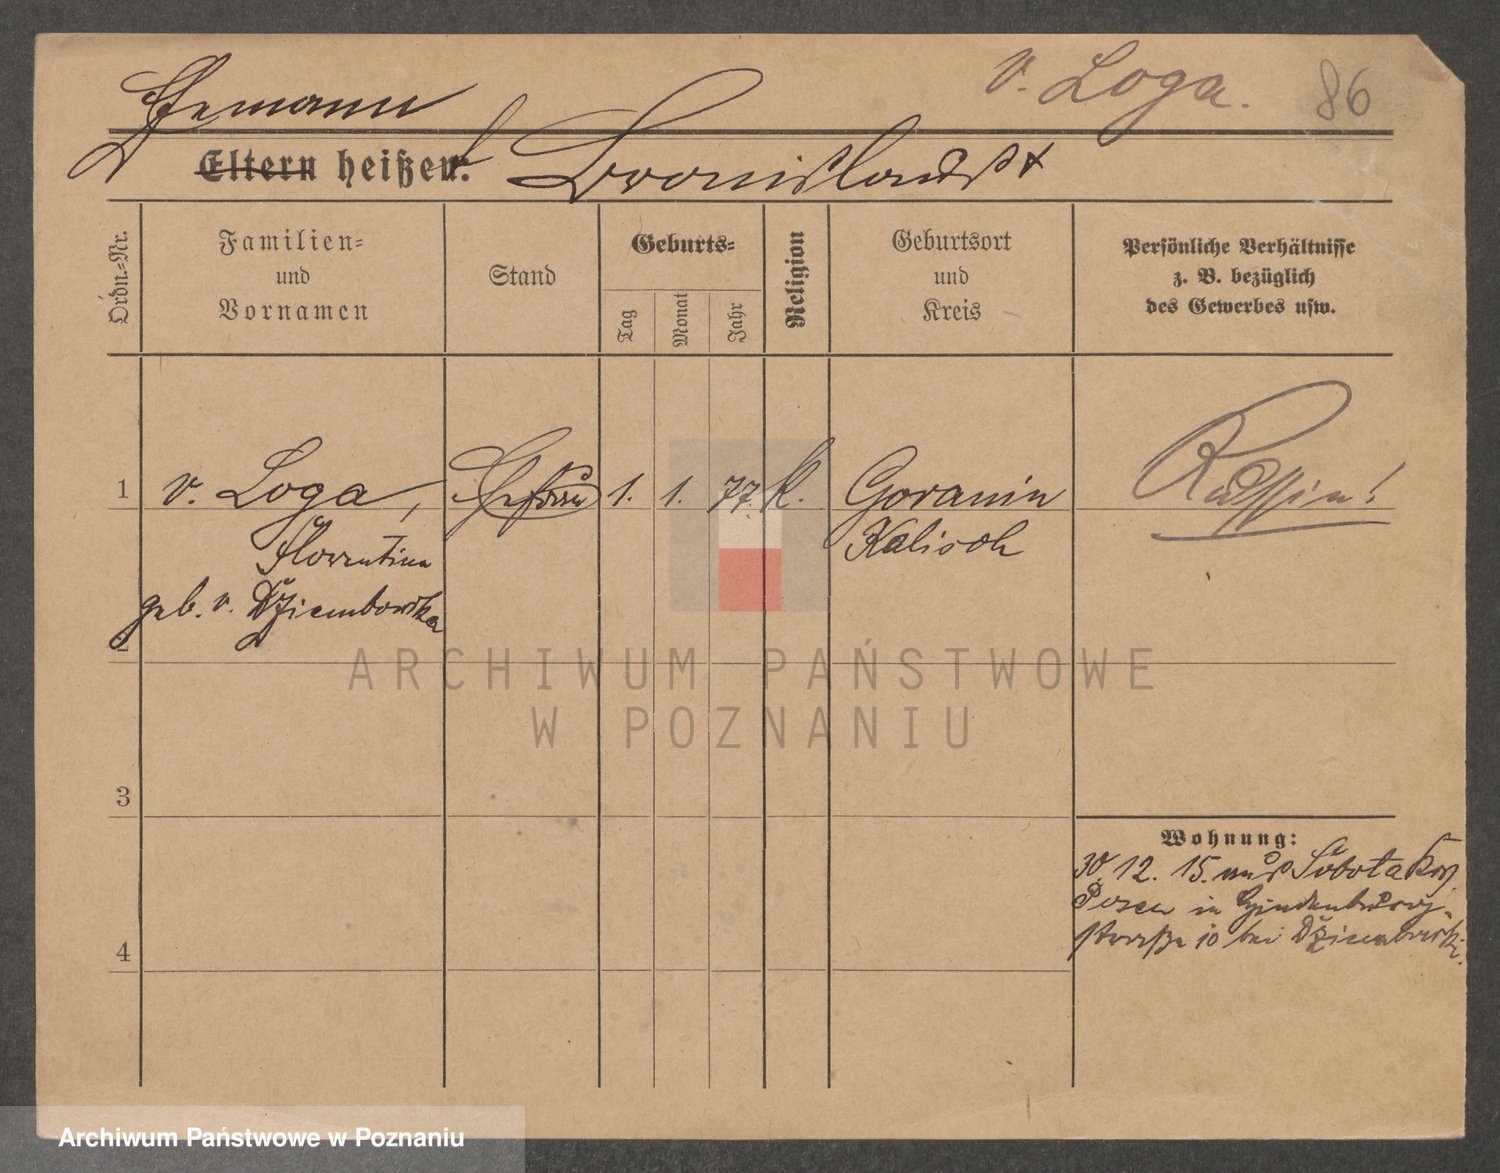 v. Loga.
86
Ehemann
Eltern heißen: Bronislaus
Ordn.=Nr.
Familien=
und
Vornamen
Stand
Geburts=
Tag
Monat
Jahr
Religion
Geburtsort
und
Kreis
Persönliche Verhältnisse
z. B. bezüglich
des Gewerbes usw.
1 v. Loga, Ehefrau 1. 1. 77. K. Goranin Russin!
Florentine Kalisch
geb. v. Dziembowska
2
3
4
Wohnung:
30 12. 15. aus Sobota Krs.
Posen in Hindenburg-
straße 10 bei Dziembowski.
ARCHIWUM PAŃSTWOWE
W POZNANIU
Archiwum Państwowe w Poznaniu